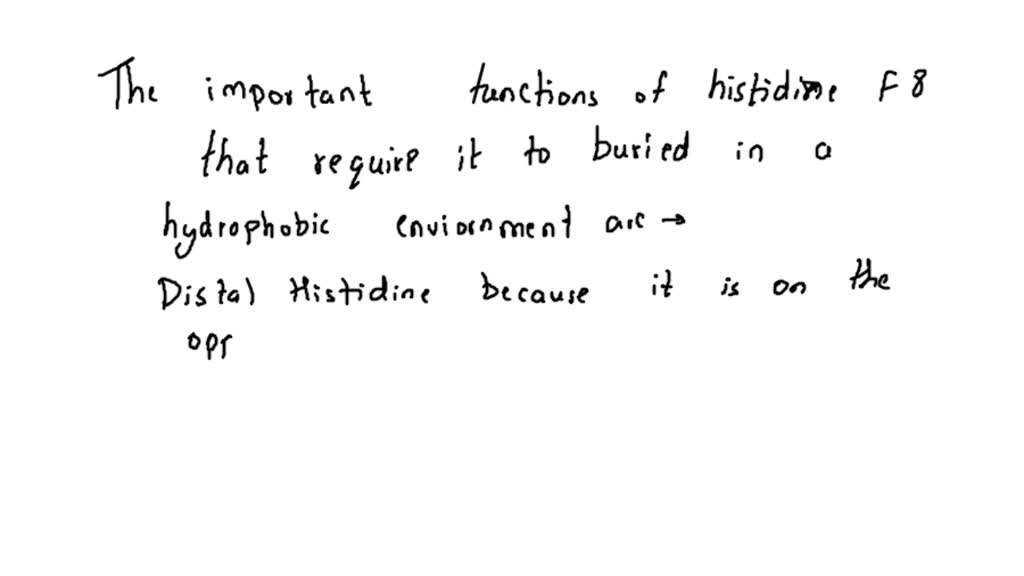 The important functions of histidine F 8
that require it to buried in a
hydrophobic enviornment are →
Distal Histidine because it is on the
opp